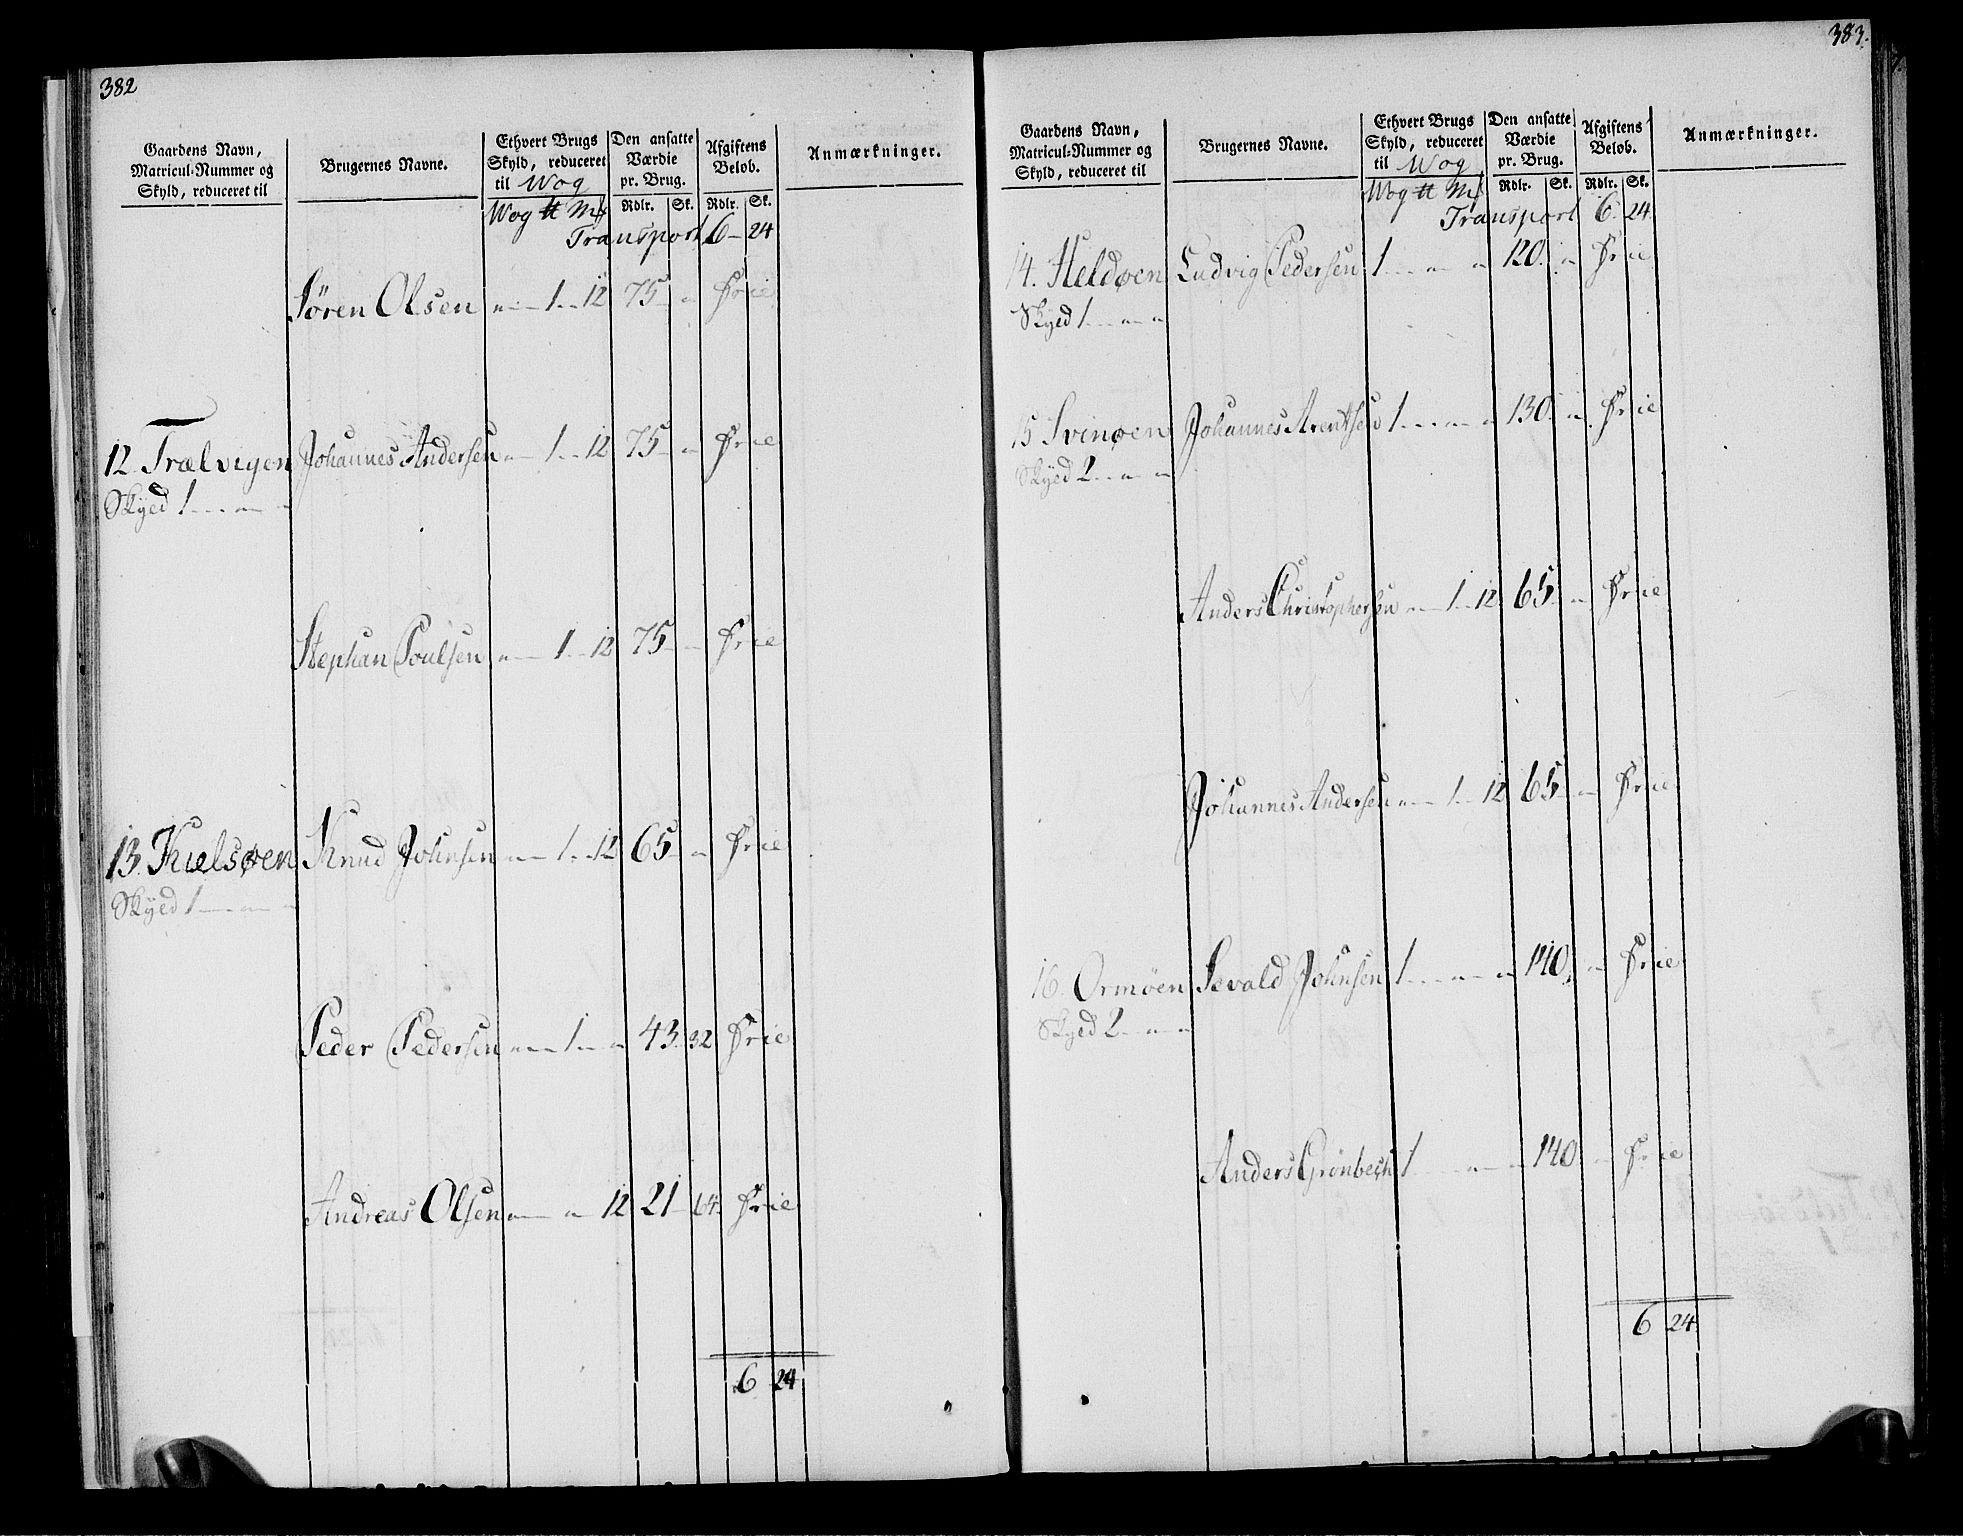 382
Gaardens Navn, Matricul-Nummer og Skyld, reduceret til
Brugernes Navne.
Ethvert Brugs Skyld, reduceret til Wog
Den ansatte Værdie pr. Brug.
Afgiftens Beløb.
Anmærkninger.
Wog ℔ Mk Rdlr. Sk. Rdlr. Sk.
Transport 6 - 24
Søren Olsen " 1 12 75 " Frie
12 Trælvigen Johannes Andersen " 1 12 75 " Frie
Skyed 1 " "
Stephan Poulsen " 1 12 75 " Frie
13. Kielsøen Knud Johnsen " 1 12 65 " Frie
Skyed 1 " "
Peder Pedersen " 1 " 43 32 Frie
Andreas Olsen " " 12 21 64 Frie
6 24
383.
Gaardens Navn, Matricul-Nummer og Skyld, reduceret til
Brugernes Navne.
Ethvert Brugs Skyld, reduceret til Wog
Den ansatte Værdie pr. Brug.
Afgiftens Beløb.
Anmærkninger.
Wog ℔ Mk Rdlr. Sk. Rdlr. Sk.
Transport 6 24
14. Heldøen Ludvig Pedersen 1 " " 120 " Frie
Skyed 1 " "
15 Svinøen Johannes Arentsen 1 " " 130 " Frie
Skyed 2 " "
Anders Christophersen " 1 12 65 " Frie
Johannes Andersen " 1 12 65 " Frie
16 Ormøen Sevald Johnsen 1 " " 140 " Frie
Skyed 2 " "
Anders Grönbech 1 " " 140 " Frie
6 24